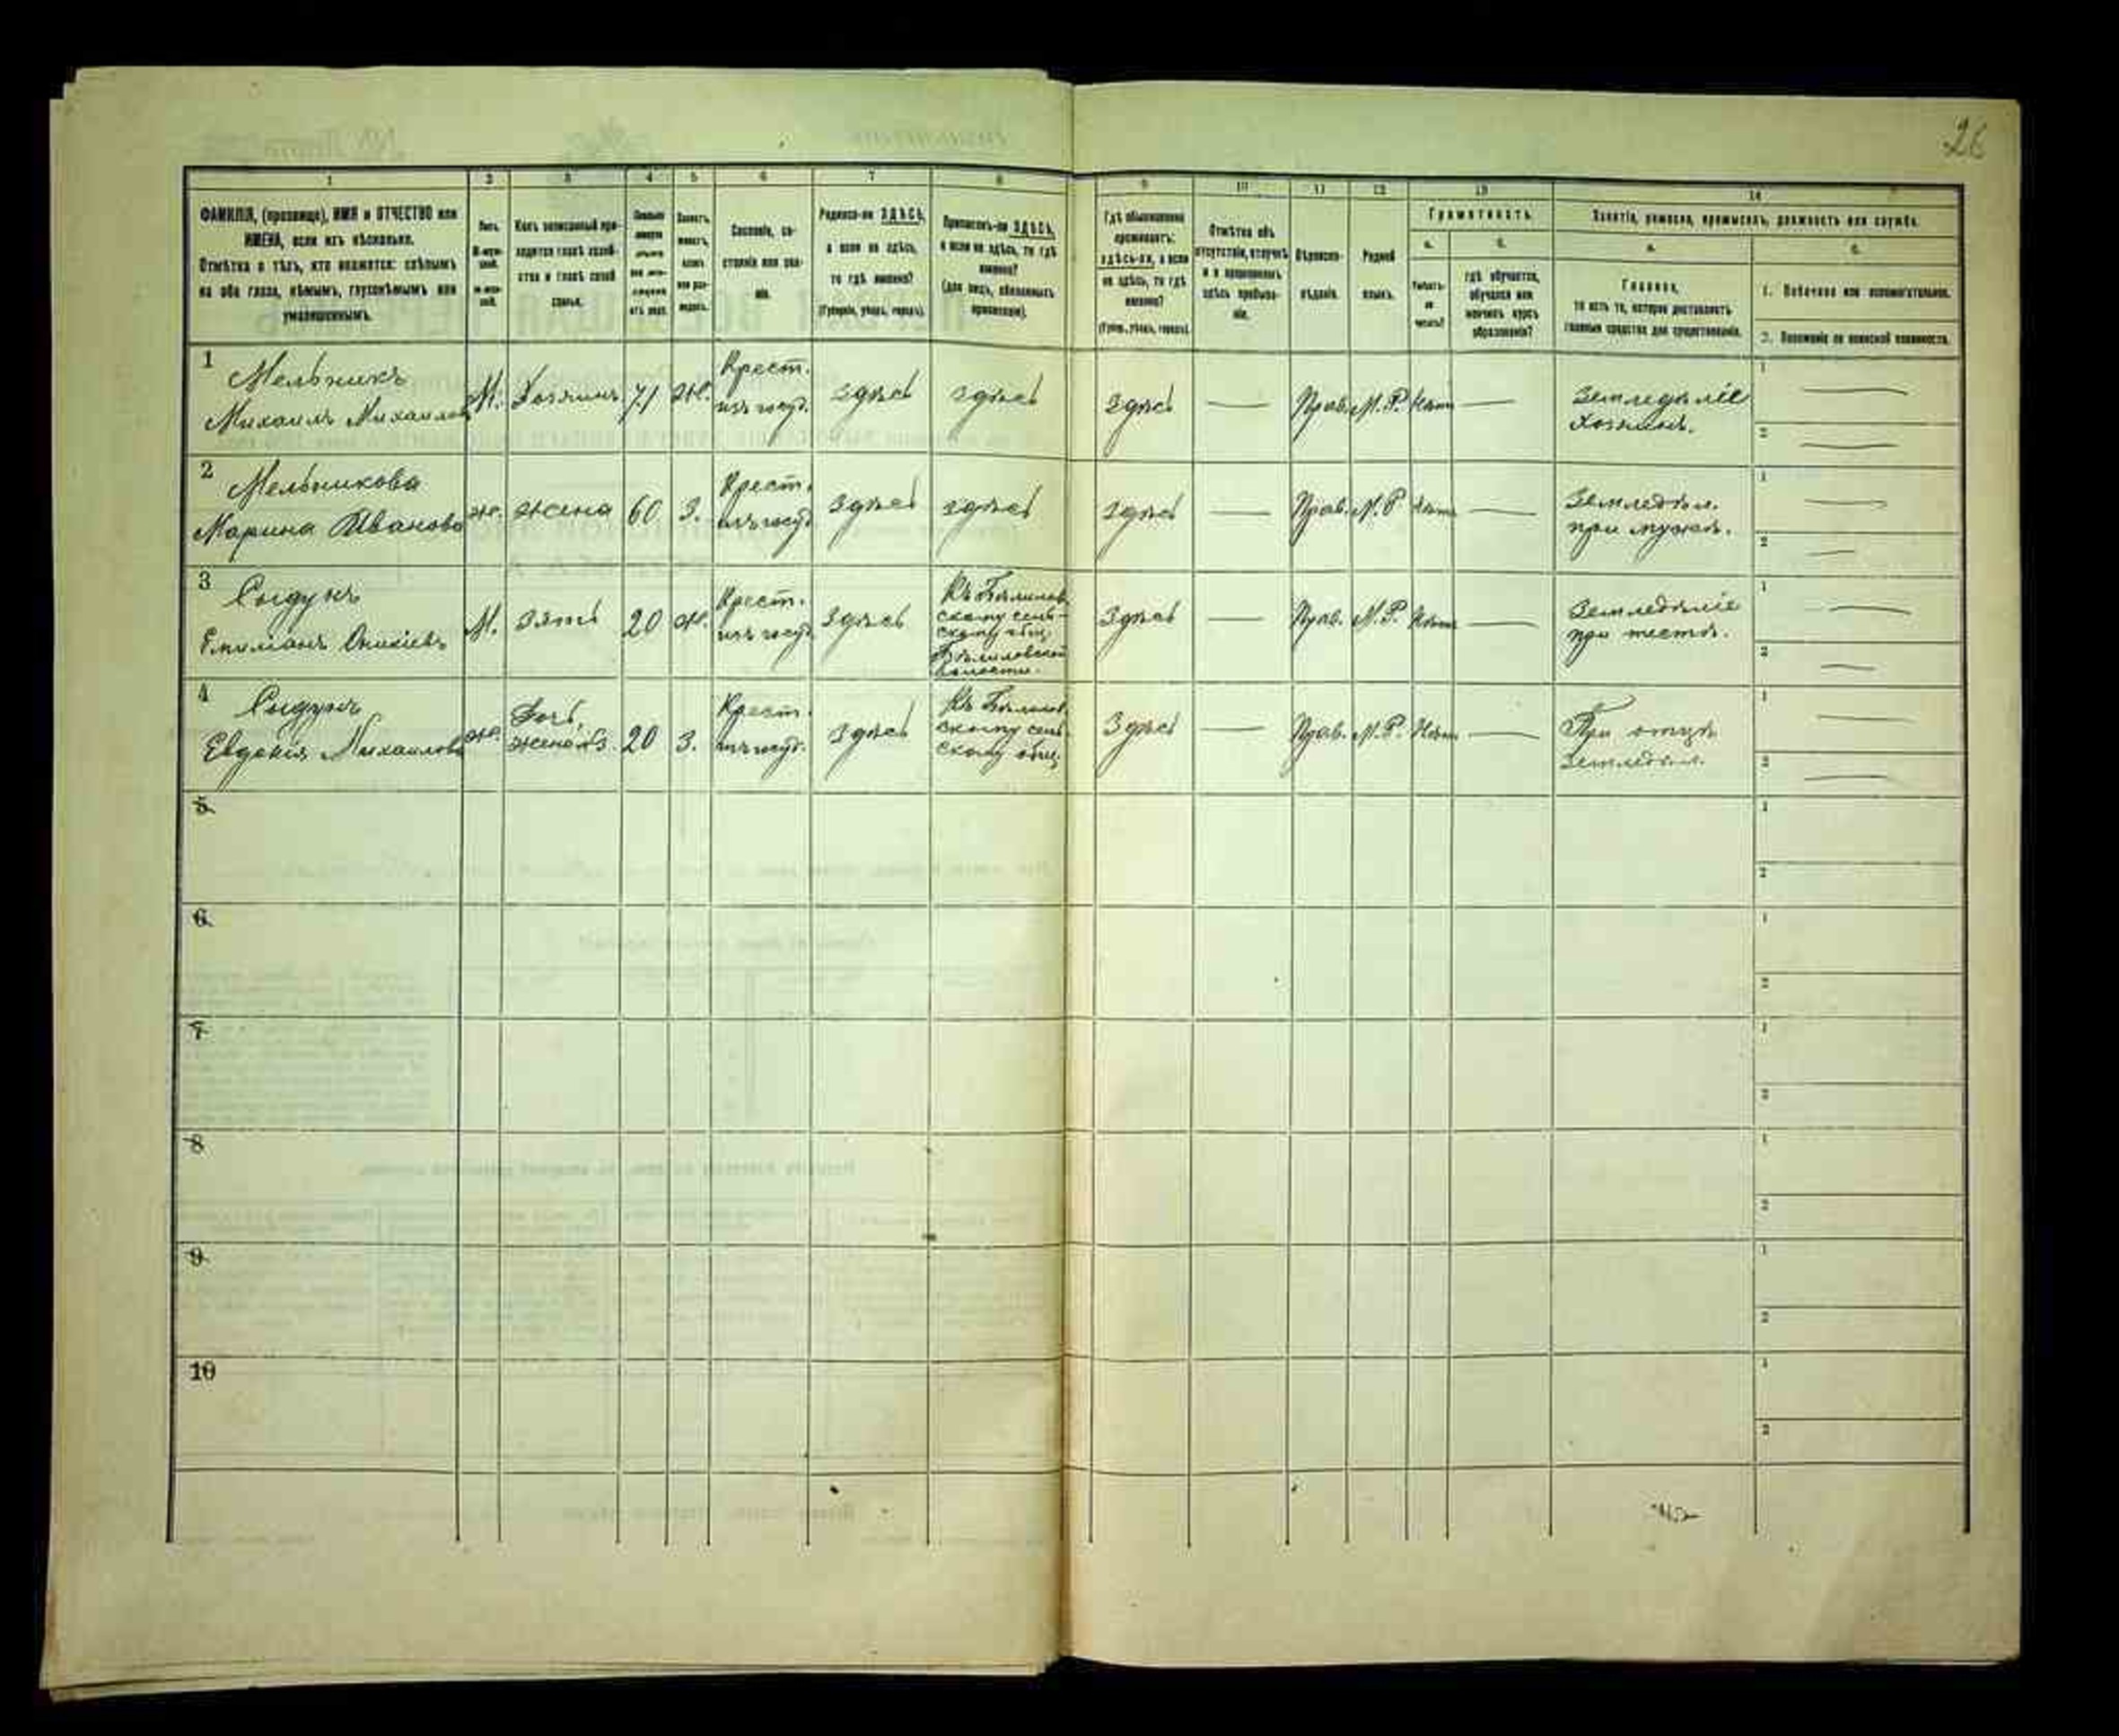 26
1 2 3 4 5 6 7 8 9 10 11 12 13 14
ФАМИЛІЯ, (прозвище), ИМЯ и ОТЧЕСТВО или
ИМЕНА, если ихъ нѣсколько.
Отмѣтка о тѣхъ, кто окажется: слѣпымъ
на оба глаза, нѣмымъ, глухонѣмымъ или
умалишеннымъ.
Полъ.
М-муж-
ской.
Ж-жен-
скій.
Какъ записанный при-
ходится главѣ хозяй-
ства и главѣ своей
семьи.
Сословіе, со-
стояніе или зва-
ніе.
Родился-ли ЗДѢСЬ,
а если не здѣсь,
то гдѣ именно?
(Губернія, уѣздъ, городъ).
Приписанъ-ли ЗДѢСЬ,
а если не здѣсь, то гдѣ
именно?
(для лицъ, обязанныхъ
припиской).
Гдѣ обыкновенно
проживаетъ:
здѣсь-ли, а если
не здѣсь, то гдѣ
именно?
(Губер., уѣздъ, городъ).
Отмѣтка объ
отсутствіи, отлучкѣ
и о временномъ
здѣсь пребыва-
ніи.
Вѣроиспо-
вѣданіе.
Родной
языкъ.
Грамотность.
а. б.
Умѣетъ-
ли
читать?
гдѣ обучается,
обучался или
кончилъ курсъ
образованія?
Занятіе, ремесло, промыселъ, должность или служба.
а.
Главное,
то есть то, которое доставляетъ
главныя средства для существованія.
1. Побочное или вспомогательное.
2. Положеніе по воинской повинности.
1 Мельникъ
Михаилъ Михаиловъ
М. Хозяинъ 71 Ж.
Крест.
изъ госуд.
здѣсь здѣсь здѣсь — Прав. М.Р. Нѣтъ —
Земледѣліе
хозяинъ.
1 —
2 —
2 Мельникова
Марина Иванова
Ж. жена 60 З.
Крест.
изъ госуд.
здѣсь здѣсь здѣсь — Прав. М.Р. Нѣтъ —
Земледѣл.
при мужѣ.
1 —
2 —
3 Сыдукъ
Емиліанъ Оникіевъ
М. зять 20 Ж.
Крест.
изъ госуд.
здѣсь
Къ Бѣлилов
скому сель-
скому общ.
Бѣлиловской
волости.
здѣсь — Прав. М.Р. Нѣтъ —
Земледѣліе
при тестѣ.
1 —
2 —
4 Сыдукъ
Евдокія Михаилова
Ж.
Дочь,
жена №3
20 З.
Крест.
изъ госуд.
здѣсь
Къ Бѣлилов
скому сель
скому общ.
здѣсь — Прав. М.Р. Нѣтъ —
При отцѣ
земледѣл.
1 —
2 —
5
1
2
6
1
2
7
1
2
8
1
2
9
1
2
10
1
2